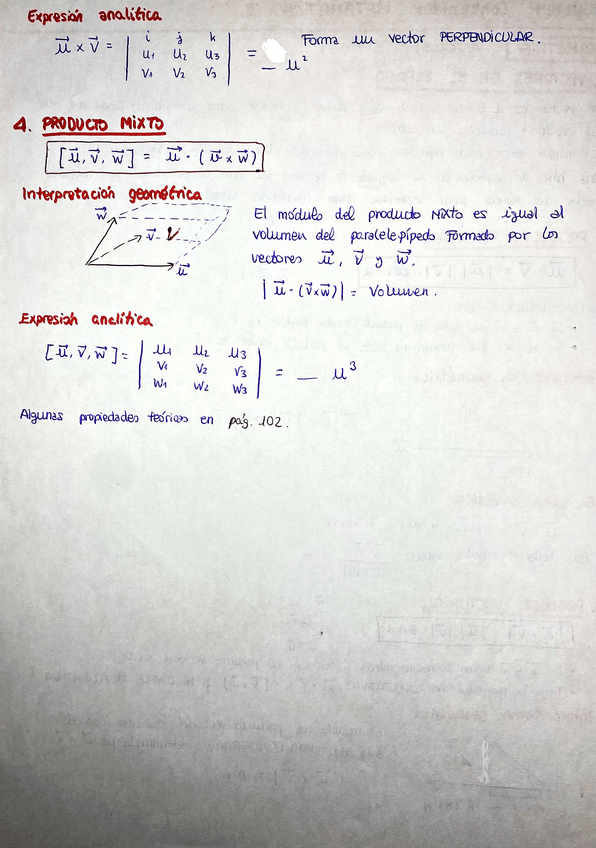 Expresión analítica
u⃗ x v⃗ = | i j k | = _ u² Forma un vector PERPENDICULAR.
| u₁ u₂ u₃ |
| v₁ v₂ v₃ |
4. PRODUCTO MIXTO
[u⃗, v⃗, w⃗] = u⃗ · (v⃗ x w⃗)
Interpretación geométrica
w⃗ v⃗ V u⃗
El módulo del producto Mixto es igual al
volumen del paralelepípedo Formado por los
vectores u⃗, v⃗ y w⃗.
|u⃗ · (v⃗ x w⃗)| = Volumen.
Expresión analítica
[u⃗, v⃗, w⃗] = | u₁ u₂ u₃ | = _ u³
| v₁ v₂ v₃ |
| w₁ w₂ w₃ |
Algunas propiedades teóricas en pág. 102.